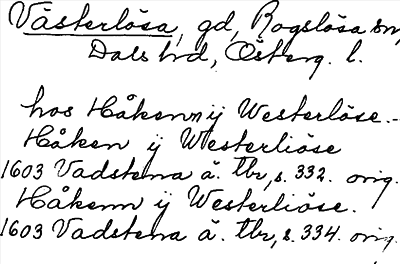 Västerlösa, gd, Rogslösa sn,
Dals hd, Österg. l.
hos Håkenn ij Westerlöse.-
Håken ij Westerliöse
1603 Vadstena ä. tbr, s. 332. orig.
Håkenn ij Westerliöse.
1603 Vadstena ä. tbr, s. 334. orig.